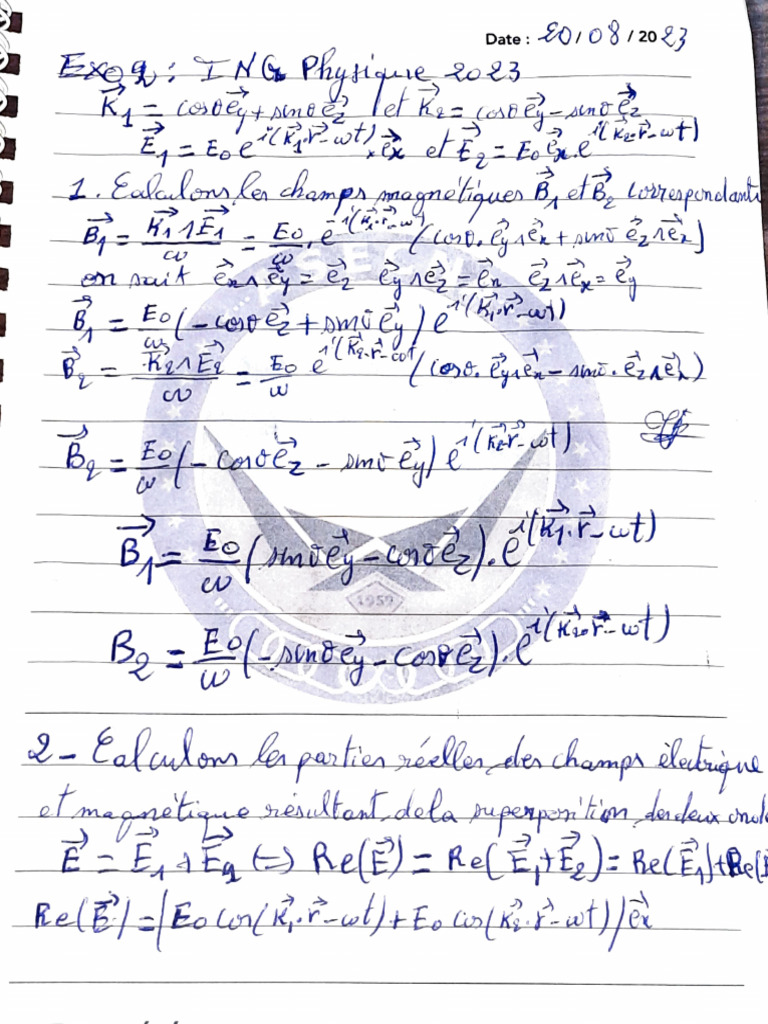 Date : 20/08/2023
Exo 2 : ING Physique 2023
K⃗1 = cosθe⃗y + sinθe⃗z et K⃗2 = cosθe⃗y - sinθe⃗z
E⃗1 = E0 e^i(K⃗1.r⃗ - wt) × e⃗x et E⃗2 = E0 e⃗x.e^i(K⃗2.r⃗ - wt)
1. Calculons les champs magnétiques B⃗1 et B⃗2 correspondants
B⃗1 = K⃗1∧E⃗1/ω = E0/ω . e^i(K⃗1.r⃗ - wt) (cosθ.e⃗y∧e⃗x + sinθ e⃗z∧e⃗x)
on sait e⃗x∧e⃗y = e⃗z e⃗y∧e⃗z = e⃗x e⃗z∧e⃗x = e⃗y
B⃗1 = E0/ω (-cosθe⃗z + sinθe⃗y) e^i(K⃗1.r⃗ - wt)
B⃗2 = K⃗2∧E⃗2/ω = E0/ω e^i(K⃗2.r⃗ - wt (cosθ.e⃗y∧e⃗x - sinθ.e⃗z∧e⃗x)
B⃗2 = E0/ω (-cosθe⃗z - sinθe⃗y) e^i(K⃗2.r⃗ - wt)
B⃗1 = E0/ω (sinθe⃗y - cosθe⃗z).e^i(K⃗1.r⃗ - wt)
1959
B2 = E0/ω (-sinθe⃗y - cosθe⃗z).e^i(K⃗2.r⃗ - wt)
2 - Calculons les parties réelles des champs électrique
et magnétique résultant de la superposition des deux onde
E⃗ = E⃗1 + E⃗2 ⟺ Re(E⃗) = Re(E⃗1+E⃗2) = Re(E⃗1) + Re(
Re(E⃗) = (E0 cos(K⃗1.r⃗ - wt) + E0 cos(K⃗2.r⃗ - wt)) e⃗x